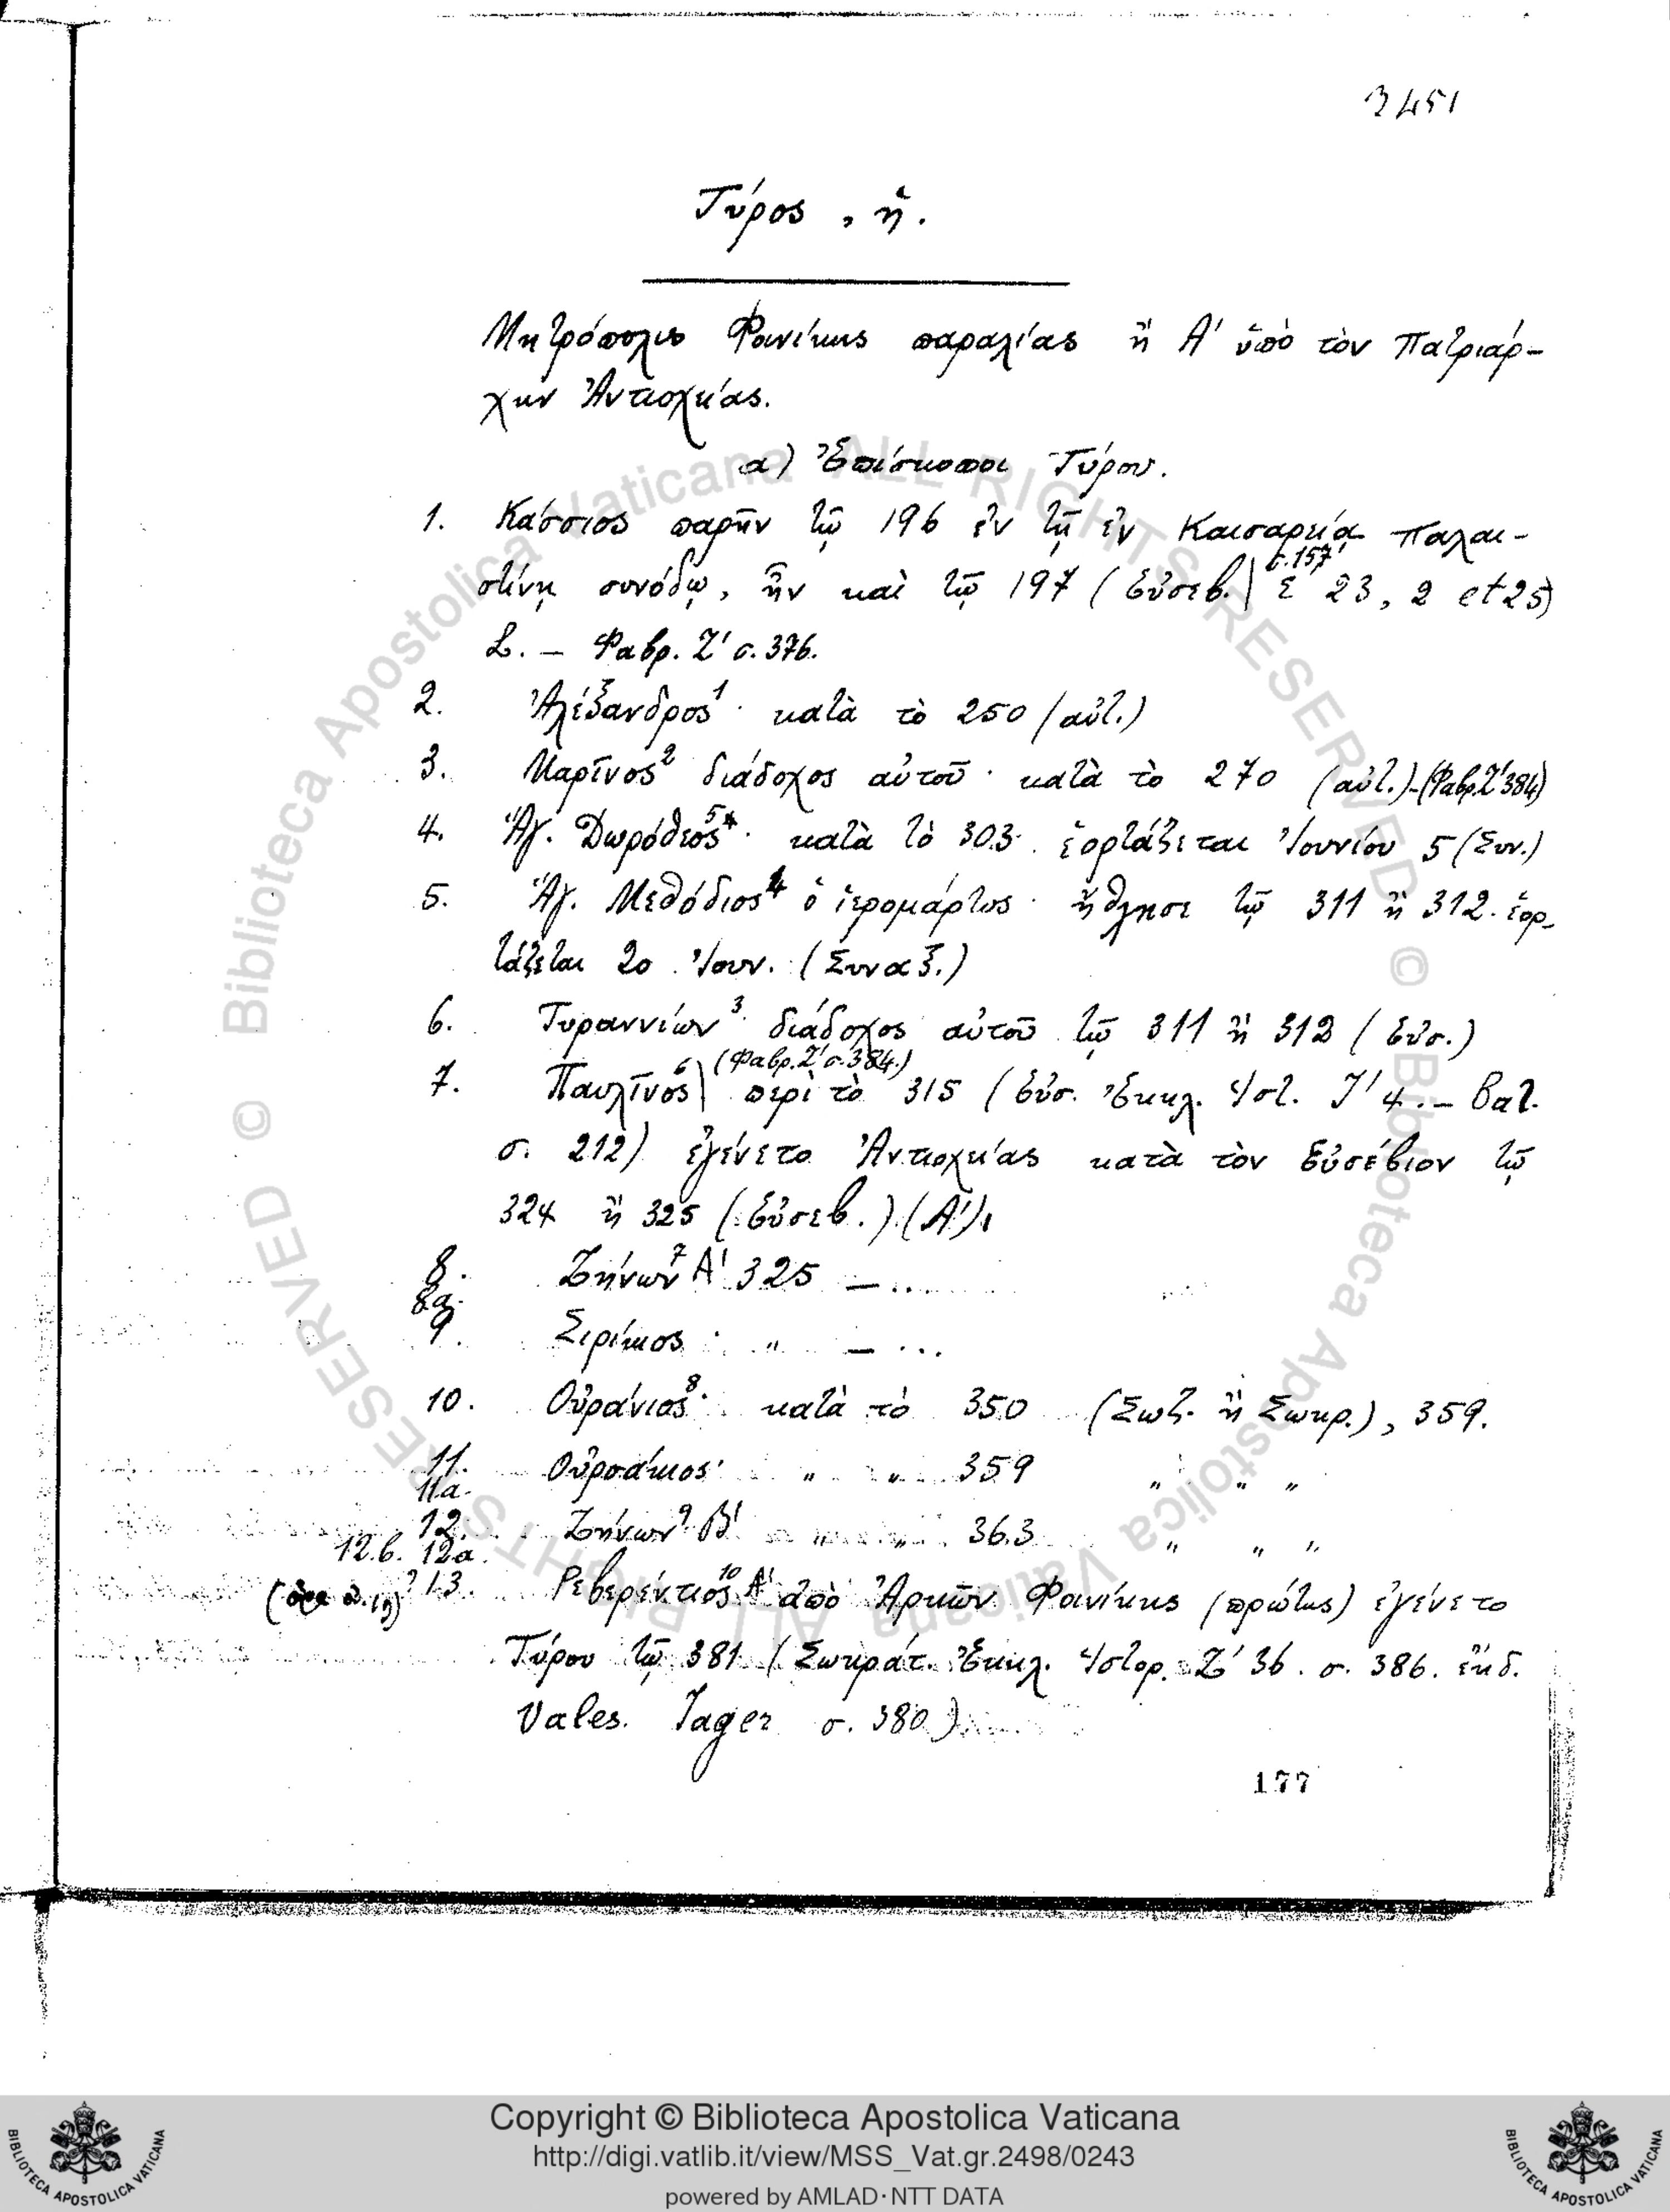 3451
Τύρος, ἡ.
Μητρόπολις Φοινίκης παραλίας ἢ Α' ὑπὸ τὸν Πατριάρ-
χην Ἀντιοχείας.
α) Ἐπίσκοποι Τύρου.
1. Κάσσιος παρῆν τῷ 196 ἐν τῇ ἐν Καισαρείᾳ Παλαι-
σ.157
στίνῃ συνόδῳ, ἦν καὶ τῷ 197 (Εὐσεβ. Ε' 23, 2 et 25)
L. – Φαβρ. Ζ' σ. 376.
2. Ἀλέξανδρος1· κατὰ τὸ 250 (αὐτ.)
3. Μαρῖνος2 διάδοχος αὐτοῦ· κατὰ τὸ 270 (αὐτ.)-(Φαβρ. Ζ' 384)
4. Ἅγ. Δωρόθεος5· κατὰ τὸ 303· ἑορτάζεται Ἰουνίου 5 (Συν.)
5. Ἅγ. Μεθόδιος4 ὁ ἱερομάρτυς· ἤθλησε τῷ 311 ἢ 312. ἑορ-
τάζεται 20 Ἰουν. (Συναξ.)
6. Τυραννίων3· διάδοχος αὐτοῦ τῷ 311 ἢ 312 (Εὐσ.)
(Φαβρ. Ζ' σ. 384.)
7. Παυλῖνος6 περὶ τὸ 315 (Εὐσ. Ἐκκλ. Ἱστ. Ι' 4. – Βατ.
σ. 212) ἐγένετο Ἀντιοχείας κατὰ τὸν Εὐσέβιον τῷ
324 ἢ 325 (Εὐσεβ.) (Α').
8. Ζήνων7 Α' 325 – ...
8α.
9. Σιρίκιος · " – ...
10. Οὐράνιος8· κατὰ τὸ 350 (Σωζ. ἢ Σωκρ.), 359.
11. Οὐρσάκιος· " " 359 " " "
11α.
12. Ζήνων9 Β' " " 363 " " "
12.β. 12α.
(ὅρα 19) 13. Ρεβερέντιος10 Α' ἀπὸ Ἀρκῶν Φοινίκης (πρώτης) ἐγένετο
Τύρου τῷ 381 (Σωκράτ. Ἐκκλ. Ἱστορ. Ζ' 36. σ. 386. ἔκδ.
Vales. Jager σ. 380)
177
Copyright © Biblioteca Apostolica Vaticana
http://digi.vatlib.it/view/MSS_Vat.gr.2498/0243
powered by AMLAD·NTT DATA
BIBLIOTECA APOSTOLICA VATICANA
BIBLIOTECA APOSTOLICA VATICANA
© Biblioteca Apostolica Vaticana ALL RIGHTS RESERVED
© Biblioteca Apostolica Vaticana ALL RIGHTS RESERVED